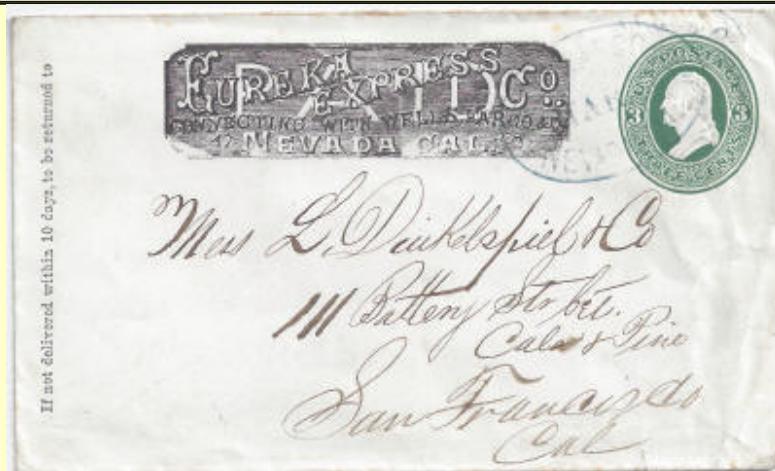 If not delivered within 10 days, to be returned to
EUREKA EXPRESS Co.
PAID
CONNECTING WITH WELLS FARGO & Co
NEVADA CAL.
U.S. POSTAGE
3 3
THREE CENTS
Mess L. Dinkelspiel & Co
111 Battery Str bet.
Cala & Pine
San Francisco
Cal